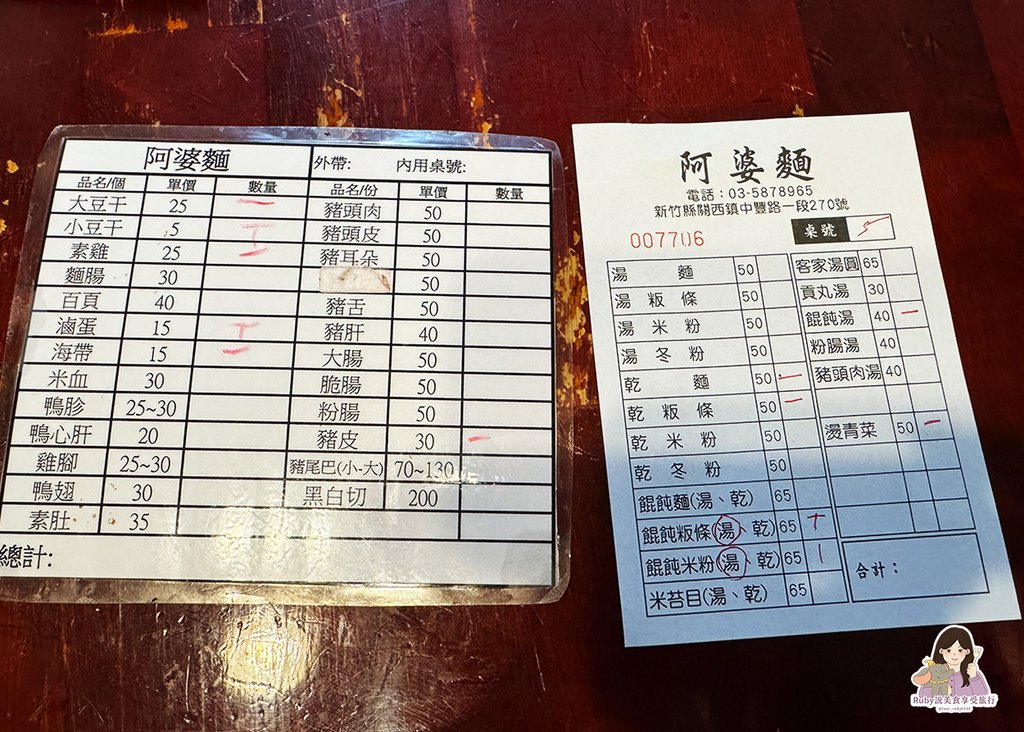 阿婆麵 外帶: 內用桌號:
品名/個 單價 數量 品名/份 單價 數量
大豆干 25 一 豬頭肉 50
小豆干 5 丅 豬頭皮 50
素雞 25 一 豬耳朵 50
麵腸 30 50
百頁 40 豬舌 50
滷蛋 15 丅 豬肝 40
海帶 15 一 大腸 50
米血 30 脆腸 50
鴨胗 25~30 粉腸 50
鴨心肝 20 豬皮 30 一
雞腳 25~30 豬尾巴(小-大) 70~130
鴨翅 30 黑白切 200
素肚 35
總計:
阿婆麵
電話：03-5878965
新竹縣關西鎮中豐路一段270號
007706 桌號 5
湯麵 50 客家湯圓 65
湯粄條 50 貢丸湯 30
湯米粉 50 餛飩湯 40 一
湯冬粉 50 粉腸湯 40
乾麵 50 一 豬頭肉湯 40
乾粄條 50 一
乾米粉 50 燙青菜 50 一
乾冬粉 50
餛飩麵(湯、乾) 65
餛飩粄條(湯、乾) 65 丅
餛飩米粉(湯、乾) 65 | 合計：
米苔目(湯、乾) 65
Ruby說美食享受旅行